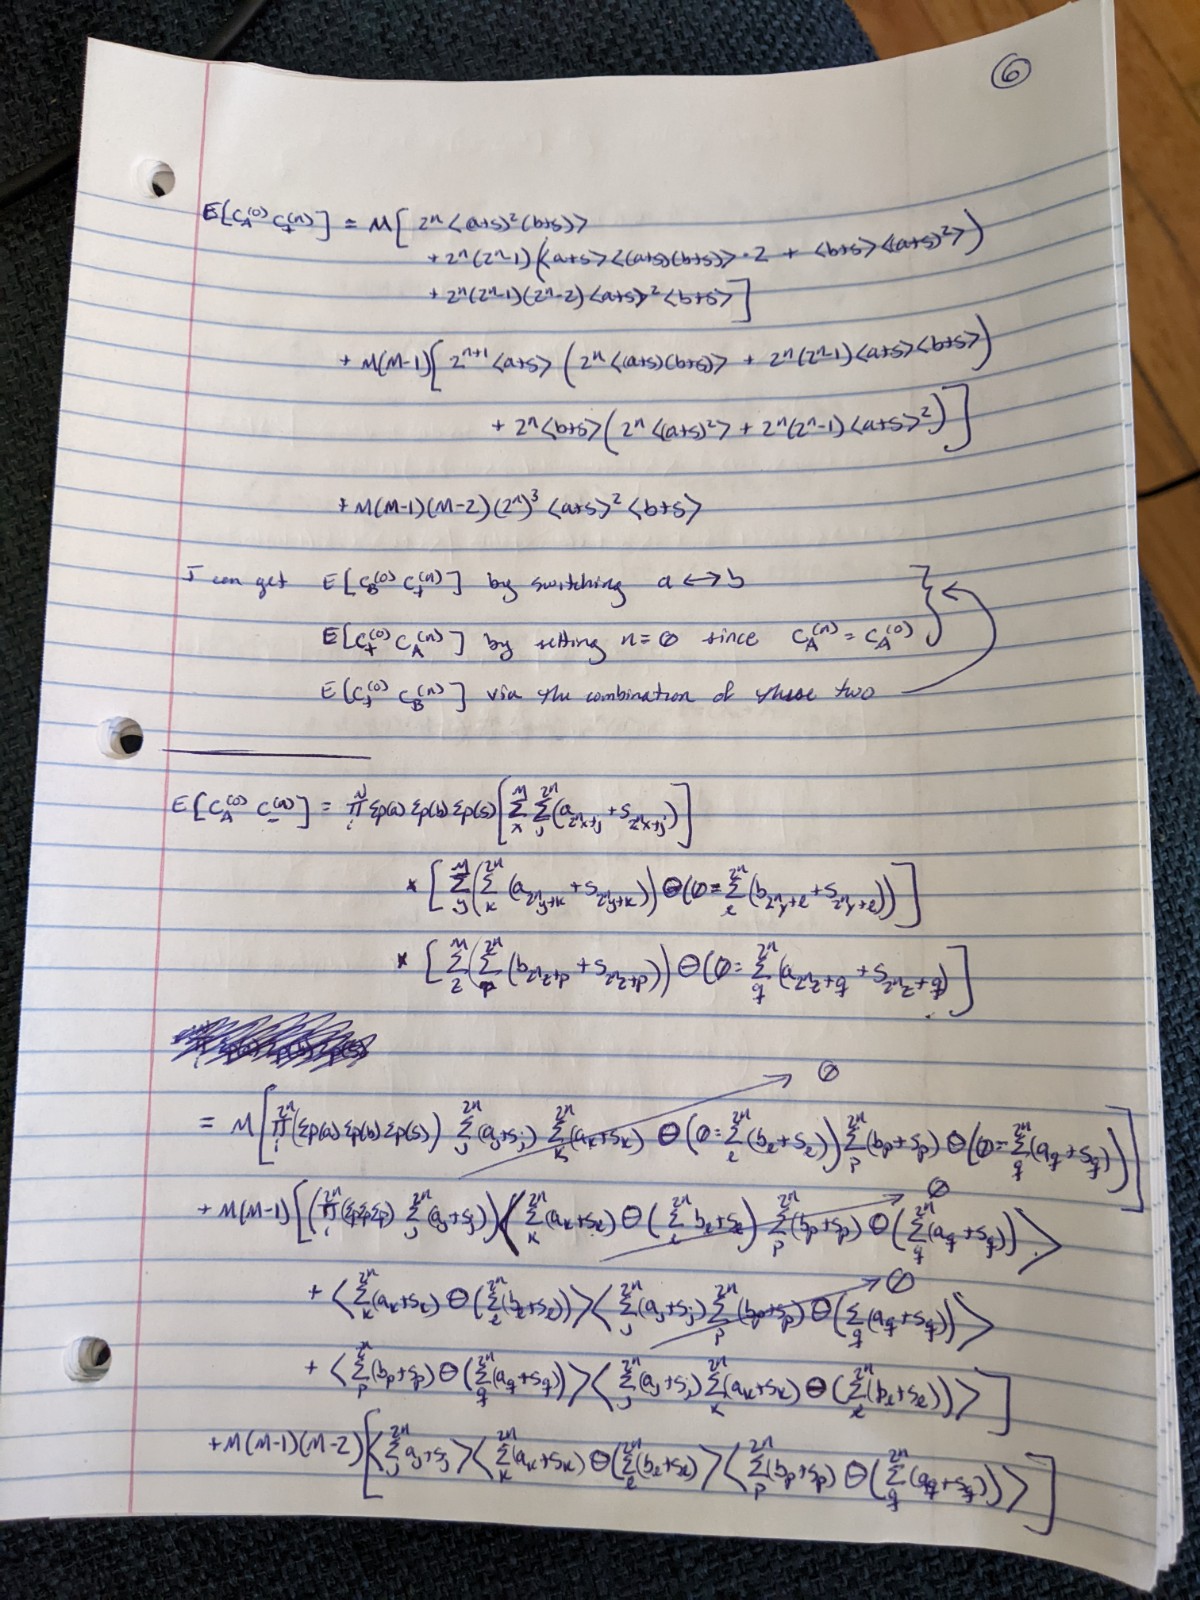 ⑥
E[C_A^(0) C_+^(n)] = M[ 2^n <(a+s)^2 (b+s)>
+ 2^n(2^n-1)(<a+s><(a+s)(b+s)>·2 + <b+s><(a+s)^2>)
+ 2^n(2^n-1)(2^n-2)<a+s>^2<b+s>]
+ M(M-1)[2^{n+1}<a+s>(2^n<(a+s)(b+s)> + 2^n(2^n-1)<a+s><b+s>)
+ 2^n<b+s>(2^n<(a+s)^2> + 2^n(2^n-1)<a+s>^2)]
+ M(M-1)(M-2)(2^n)^3 <a+s>^2 <b+s>
I can get E[C_B^(0) C_+^(n)] by switching a ↔ b
E[C_+^(0) C_A^(n)] by setting n=0 since C_A^(n) = C_A^(0)
E[C_+^(0) C_B^(n)] via the combination of these two
E[C_A^(0) C_-^(n)] = Π_i^N Σp(a) Σp(b) Σp(s) [Σ_x^M Σ_j^{2^n} (a_{2^n x+j} + s_{2^n x+j})]
* [Σ_y^M (Σ_k^{2^n} (a_{2^n y+k} + s_{2^n y+k})) Θ(0 = Σ_l^{2^n} (b_{2^n y+l} + s_{2^n y+l}))]
* [Σ_z^M (Σ_p^{2^n} (b_{2^n z+p} + s_{2^n z+p})) Θ(0 = Σ_q^{2^n} (a_{2^n z+q} + s_{2^n z+q})]
0
= M[Π_i^{2^n} (Σp(a) Σp(b) Σp(s)) Σ_j^{2^n} (a_j+s_j) Σ_k^{2^n} (a_k+s_k) Θ(0 = Σ_l^{2^n} (b_l+s_l)) Σ_p^{2^n} (b_p+s_p) Θ(0 = Σ_q^{2^n} (a_q+s_q))]
0
+ M(M-1)[(Π_i^{2^n} (ΣpΣpΣp) Σ_j^{2^n} (a_j+s_j)) <Σ_k^{2^n} (a_k+s_k) Θ(Σ_l^{2^n} b_l+s_l) Σ_p^{2^n} (b_p+s_p) Θ(Σ_q^{2^n} (a_q+s_q))>
0
+ <Σ_k^{2^n} (a_k+s_k) Θ(Σ_l^{2^n} (b_l+s_l))> <Σ_j^{2^n} (a_j+s_j) Σ_p^{2^n} (b_p+s_p) Θ(Σ_q (a_q+s_q))>
+ <Σ_p^n (b_p+s_p) Θ(Σ_q^{2^n} (a_q+s_q))> <Σ_j^{2^n} (a_j+s_j) Σ_k^{2^n} (a_k+s_k) Θ(Σ_l^{2^n} (b_l+s_l))>]
+ M(M-1)(M-2)[<Σ_j^{2^n} a_j+s_j> <Σ_k^{2^n} (a_k+s_k) Θ(Σ_l^{2^n} (b_l+s_l)> <Σ_p^{2^n} (b_p+s_p) Θ(Σ_q^{2^n} (a_q+s_q))>]